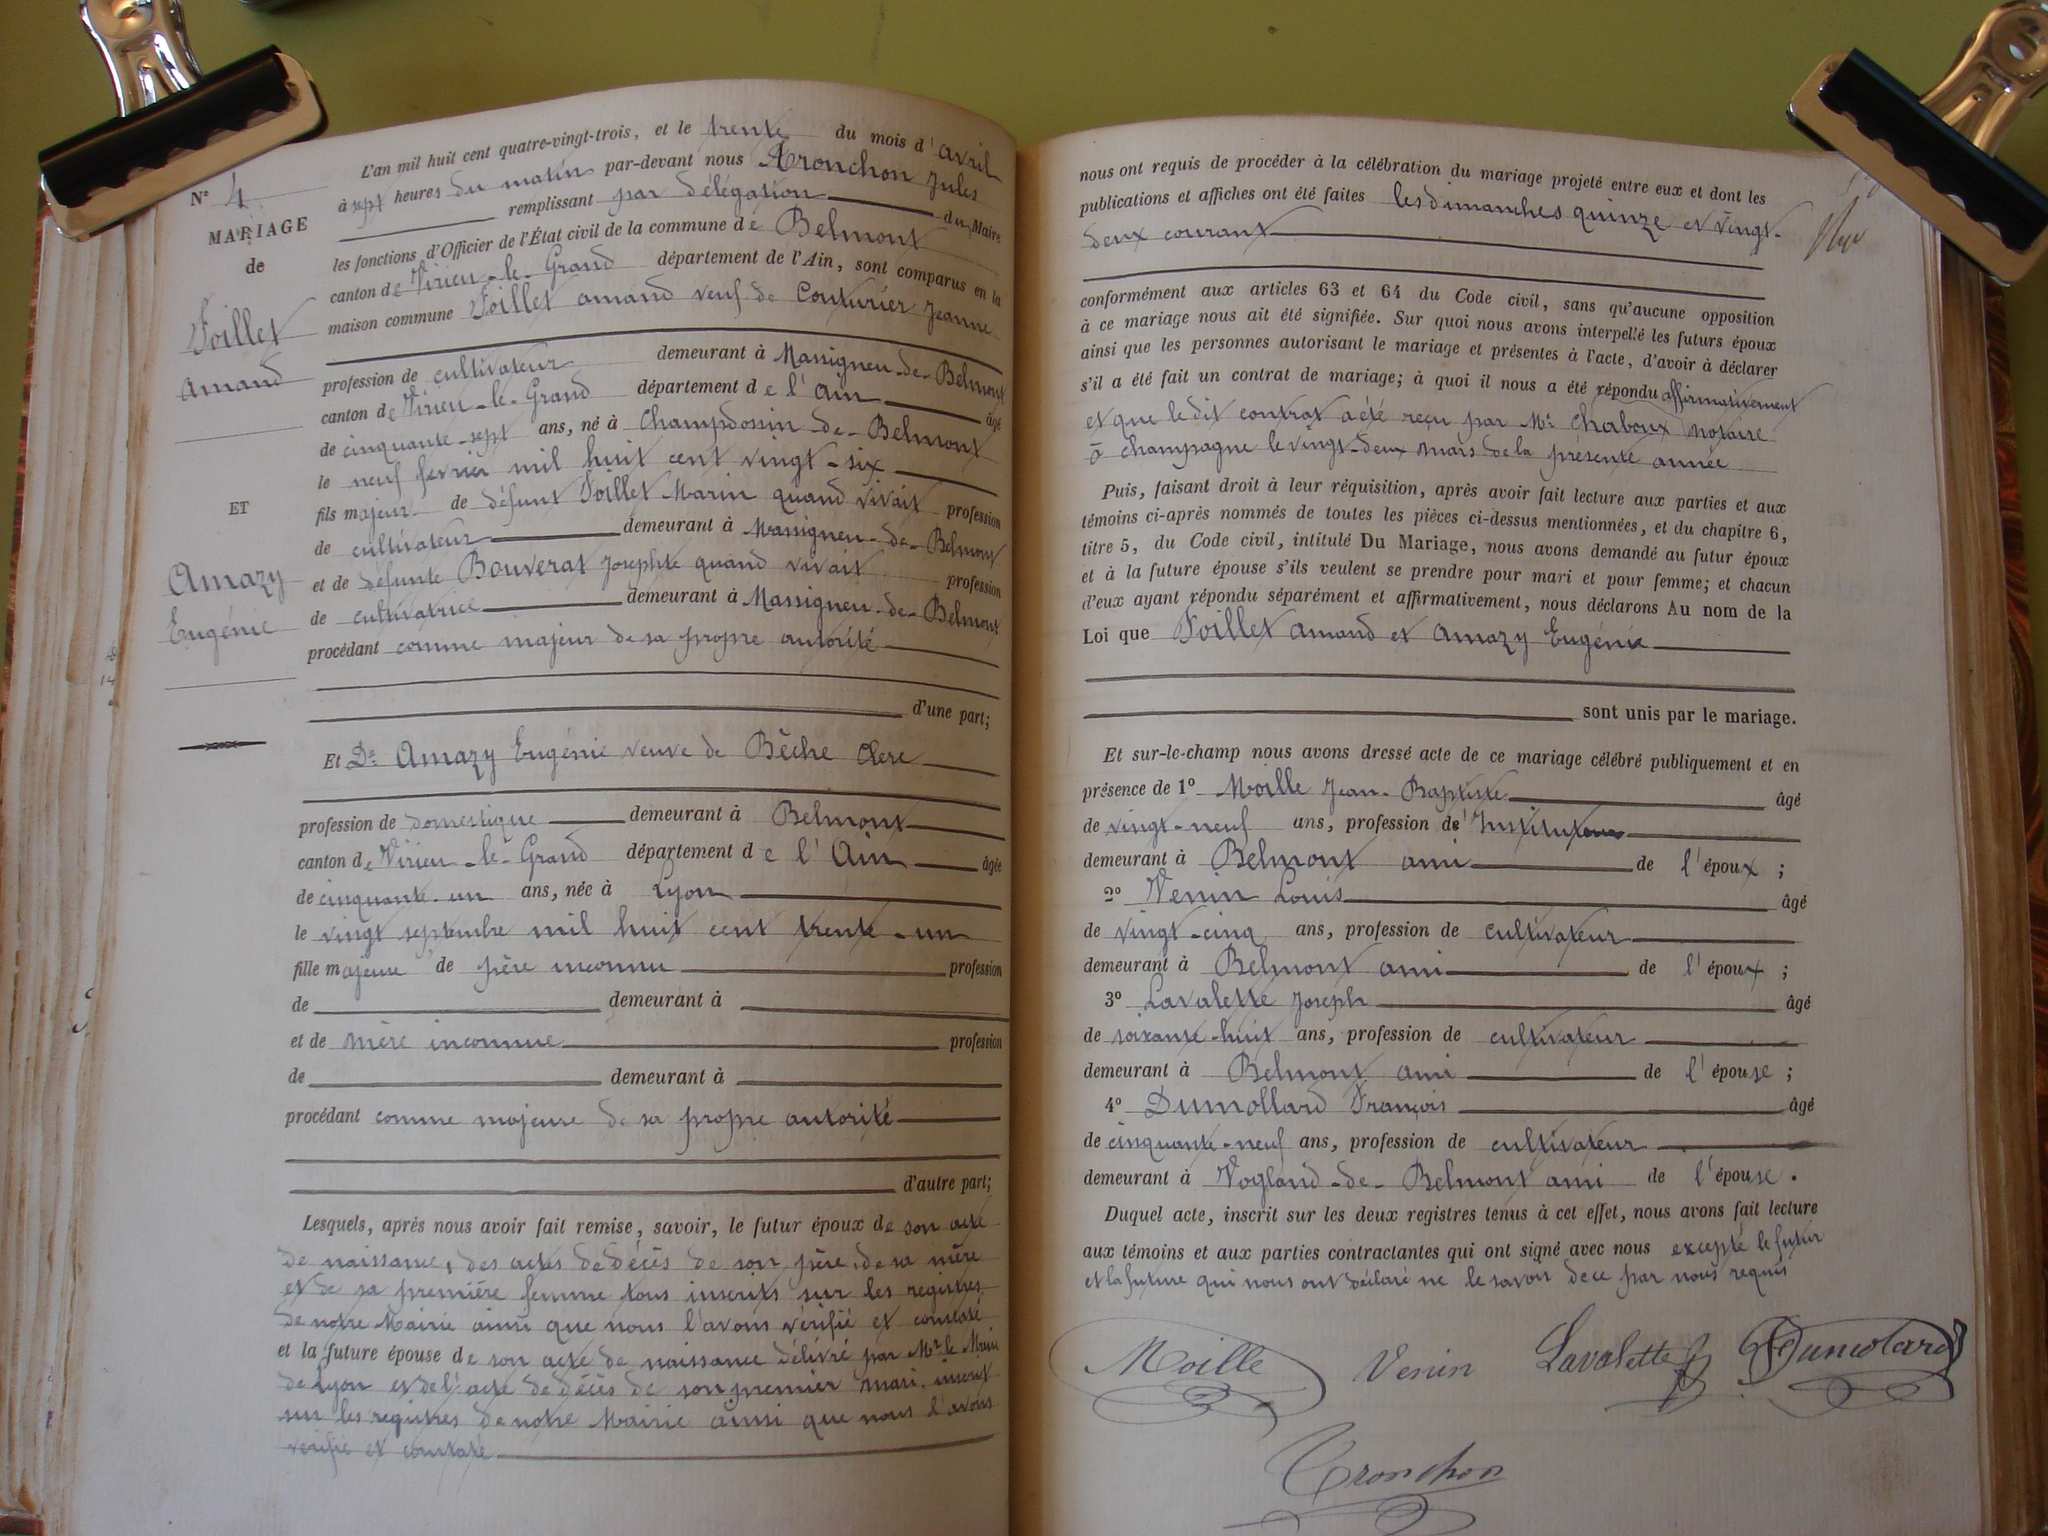 N° 4
MARIAGE
de
Foillet
Amand
ET
Amazy
Eugénie
L'an mil huit cent quatre-vingt-trois, et le trente du mois d'avril
à sept heures du matin par-devant nous Tronchon Jules
remplissant par délégation du Maire
les fonctions d'Officier de l'État civil de la commune de Belmont
canton de Virieu-le-Grand département de l'Ain, sont comparus en la
maison commune Foillet Amand veuf de Couturier Jeanne
profession de cultivateur demeurant à Massigneu-de-Belmont
canton de Virieu-le-Grand département de l'Ain âgé
de cinquante-sept ans, né à Champdossin-de-Belmont
le neuf fevrier mil huit cent vingt-six
fils majeur de défunt Foillet Marin quand vivait profession
de cultivateur demeurant à Massigneu-de-Belmont
et de défunte Bouverat Josephte quand vivait profession
de cultivatrice demeurant à Massigneu-de-Belmont
procédant comme majeur de sa propre autorité
d'une part;
Et De Amazy Eugénie veuve de Bêche Clere
profession de domestique demeurant à Belmont
canton de Virieu-le-Grand département de l'Ain âgée
de cinquante-un ans, née à Lyon
le vingt septembre mil huit cent trente-un
fille majeure de père inconnu profession
de demeurant à
et de mère inconnue profession
de demeurant à
procédant comme majeure de sa propre autorité
d'autre part;
Lesquels, après nous avoir fait remise, savoir, le futur époux de son acte
de naissance, des actes de décès de son père, de sa mère
et de sa première femme tous inscrits sur les registres
de notre Mairie ainsi que nous l'avons vérifié et constaté
et la future épouse de son acte de naissance délivré par Mr le Maire
de Lyon et de l'acte de décès de son premier mari inscrit
sur les registres de notre Mairie ainsi que nous l'avons
vérifié et constaté
nous ont requis de procéder à la célébration du mariage projeté entre eux et dont les
publications et affiches ont été faites les dimanches quinze et vingt-
deux courant
conformément aux articles 63 et 64 du Code civil, sans qu'aucune opposition
à ce mariage nous ait été signifiée. Sur quoi nous avons interpellé les futurs époux
ainsi que les personnes autorisant le mariage et présentes à l'acte, d'avoir à déclarer
s'il a été fait un contrat de mariage; à quoi il nous a été répondu affirmativement
et que le dit contrat a été reçu par Me Chaboux notaire
à Champagne le vingt-deux mars de la présente année
Puis, faisant droit à leur réquisition, après avoir fait lecture aux parties et aux
témoins ci-après nommés de toutes les pièces ci-dessus mentionnées, et du chapitre 6,
titre 5, du Code civil, intitulé Du Mariage, nous avons demandé au futur époux
et à la future épouse s'ils veulent se prendre pour mari et pour femme; et chacun
d'eux ayant répondu séparément et affirmativement, nous déclarons Au nom de la
Loi que Foillet Amand et Amazy Eugénie
sont unis par le mariage.
Et sur-le-champ nous avons dressé acte de ce mariage célébré publiquement et en
présence de 1° Moille Jean-Baptiste âgé
de vingt-neuf ans, profession d'Instituteur
demeurant à Belmont ami de l'époux;
2° Venin Louis âgé
de vingt-cinq ans, profession de cultivateur
demeurant à Belmont ami de l'époux;
3° Lavalette Joseph âgé
de soixante-huit ans, profession de cultivateur
demeurant à Belmont ami de l'épouse;
4° Dumollard François âgé
de cinquante-neuf ans, profession de cultivateur
demeurant à Vogland-de-Belmont ami de l'épouse.
Duquel acte, inscrit sur les deux registres tenus à cet effet, nous avons fait lecture
aux témoins et aux parties contractantes qui ont signé avec nous excepté le futur
et la future qui nous ont déclaré ne le savoir de ce par nous requis
Moille Venin Lavalette Dumolard
Tronchon